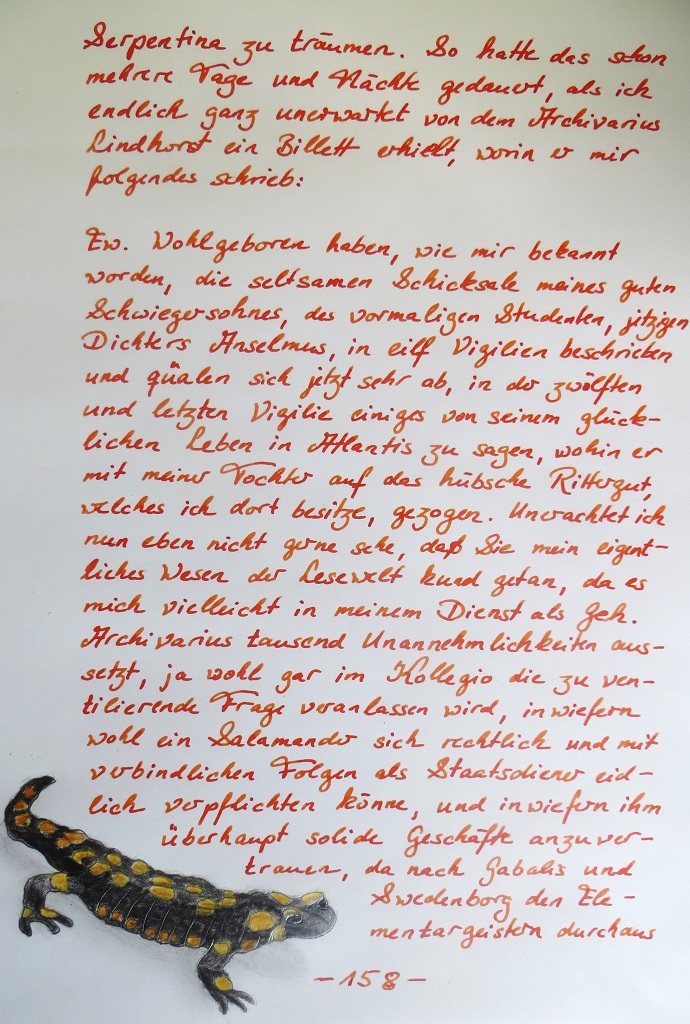 Serpentina zu träumen. So hatte das schon
mehrere Tage und Nächte gedauert, als ich
endlich ganz unerwartet von dem Archivarius
Lindhorst ein Billett erhielt, worin er mir
folgendes schrieb:
Ew. Wohlgeboren haben, wie mir bekannt
worden, die seltsamen Schicksale meines guten
Schwiegersohnes, des vormaligen Studenten, jetzigen
Dichters Anselmus, in eilf Vigilien beschrieben
und quälen sich jetzt sehr ab, in der zwölften
und letzten Vigilie einiges von seinem glück-
lichen Leben in Atlantis zu sagen, wohin er
mit meiner Tochter auf das hübsche Rittergut,
welches ich dort besitze, gezogen. Unerachtet ich
nun eben nicht gerne sehe, daß Sie mein eigent-
liches Wesen der Lesewelt kund getan, da es
mich vielleicht in meinem Dienst als Geh.
Archivarius tausend Unannehmlichkeiten aus-
setzt, ja wohl gar im Kollegio die zu ven-
tilierende Frage veranlassen wird, inwiefern
wohl ein Salamander sich rechtlich und mit
verbindlichen Folgen als Staatsdiener eid-
lich verpflichten könne, und inwiefern ihm
überhaupt solide Geschäfte anzuver-
trauen, da nach Gabalis und
Swedenborg den Ele-
mentargeistern durchaus
-158-